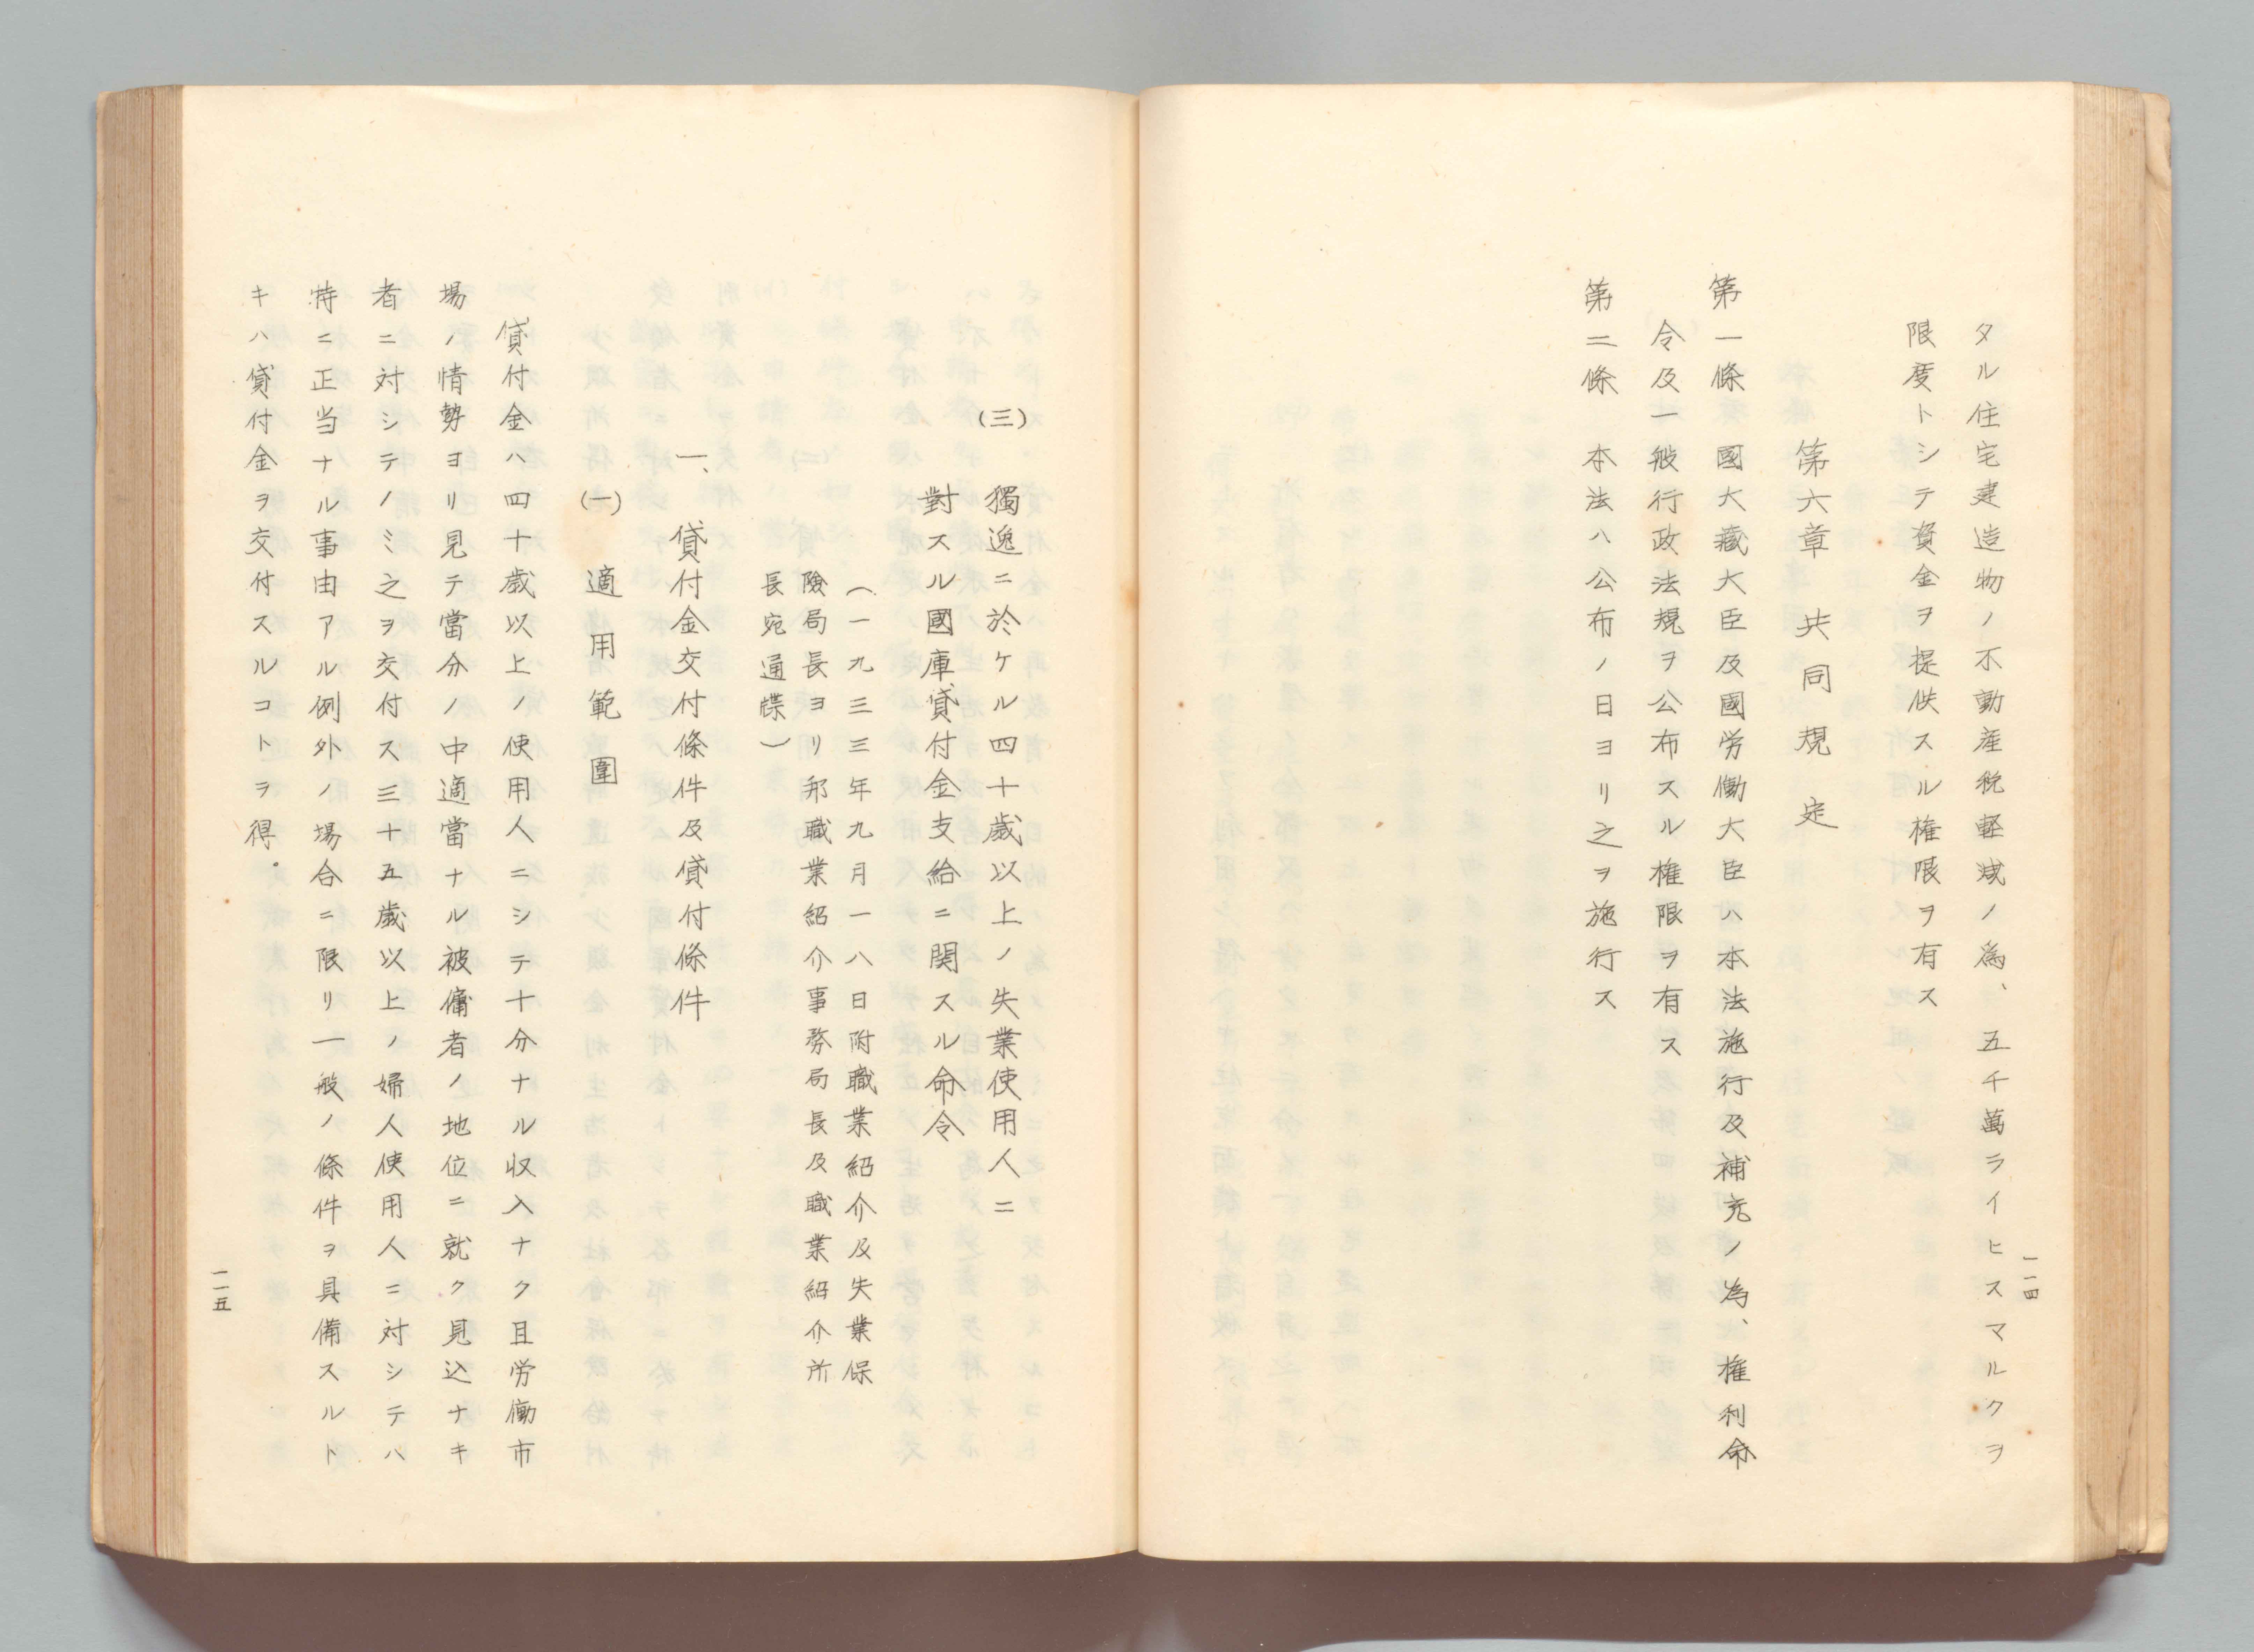 タル住宅建造物ノ不動産税軽減ノ為、五千萬ライヒスマルクヲ
限度トシテ資金ヲ提供スル権限ヲ有ス
第六章　共同規定
第一條　國大藏大臣及國労働大臣ハ本法施行及補充ノ為、権利命
令及一般行政法規ヲ公布スル権限ヲ有ス
第二條　本法ハ公布ノ日ヨリ之ヲ施行ス
一一四
(三)　獨逸ニ於ケル四十歳以上ノ失業使用人ニ
對スル國庫貸付金支給ニ関スル命令
（一九三三年九月一八日附職業紹介及失業保
險局長ヨリ邦職業紹介事務局長及職業紹介所
長宛通牒）
一、貸付金交付條件及貸付條件
(一)　適用範圍
貸付金ハ四十歳以上ノ使用人ニシテ十分ナル収入ナク且労働市
場ノ情勢ヨリ見テ當分ノ中適當ナル被傭者ノ地位ニ就ク見込ナキ
者ニ対シテノミ之ヲ交付ス三十五歳以上ノ婦人使用人ニ対シテハ
特ニ正当ナル事由アル例外ノ場合ニ限リ一般ノ條件ヲ具備スルト
キハ貸付金ヲ交付スルコトヲ得。
一一五